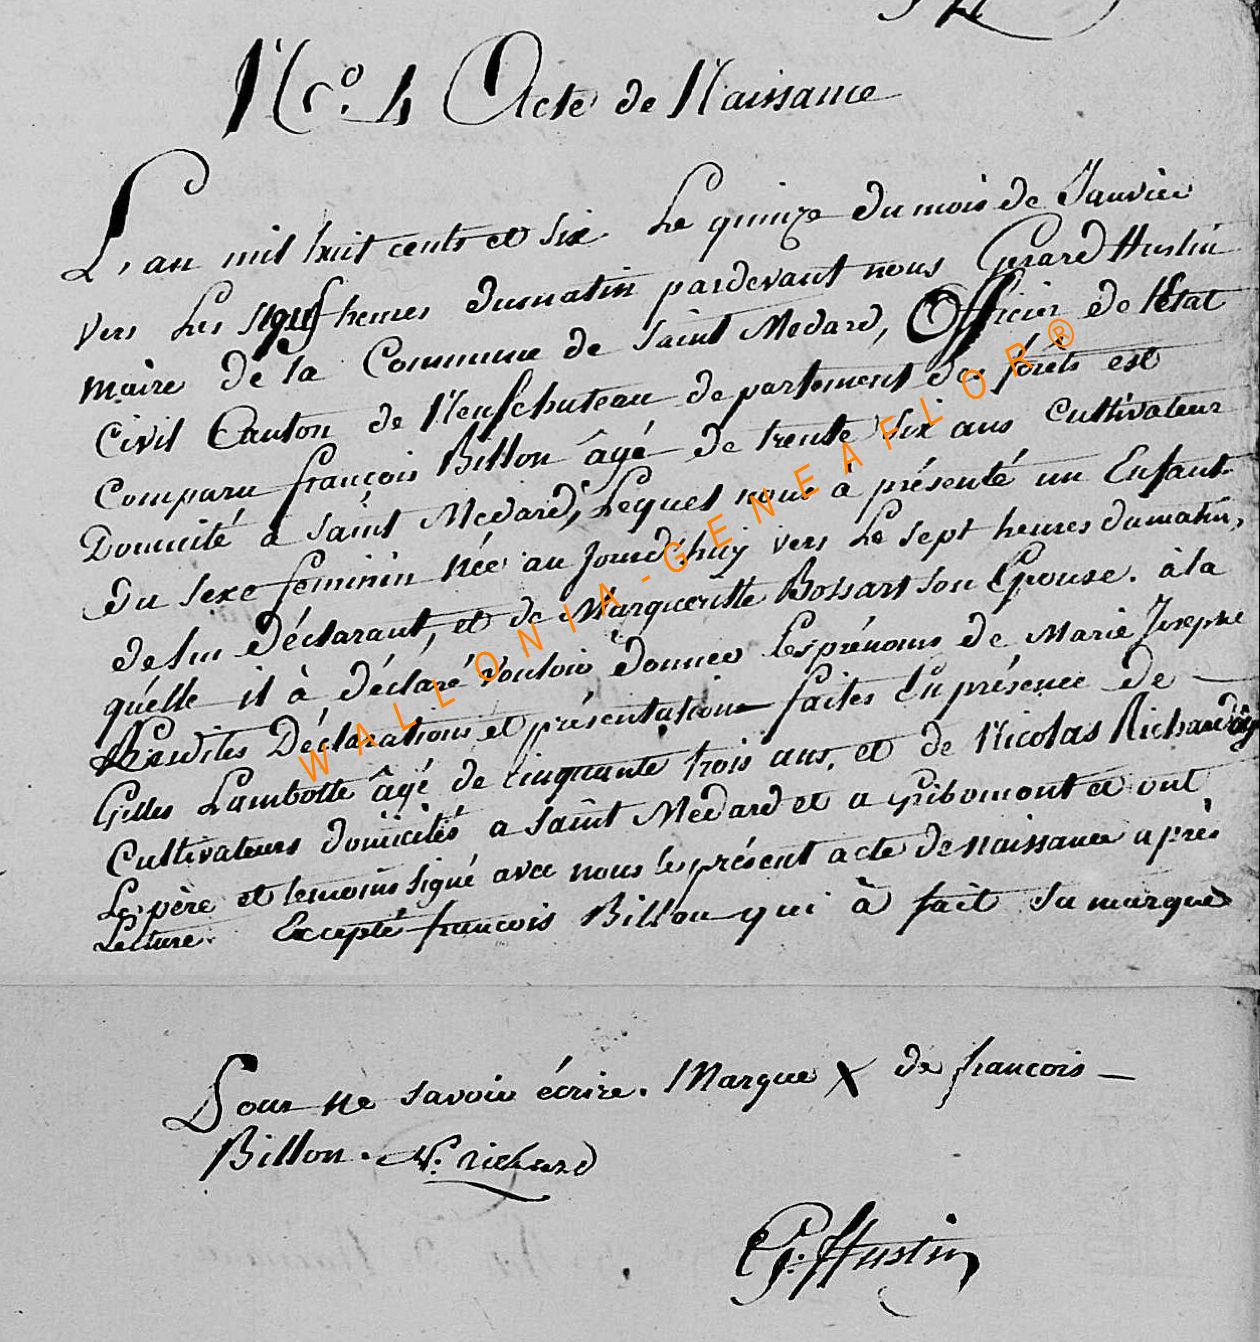 No. 4 Acte de Naissance
L'an mil huit cents et six Le quinze du mois de Janvier
vers Les neuf heures du matin pardevant nous Gerard Hustin
maire de la Commune de Saint Medard, Officier de l'Etat
Civil Canton de Neufchateau departement des forêts est
comparu françois Billon âgé de trente six ans cultivateur
Domicilié à Saint Medard, Lequel nous à présenté un Enfant
du sexe feminin née au Jourd'huy vers Le sept heures du matin,
de lui Déclarant, et de Margueritte Bossart son Epouse. à la
quélle il à déclaré vouloir donner Les prénoms de Marie Josephe
Lesdites Déclarations et présentation faites En présence de
Gilles Lambotte âgé de cinquante trois ans, et de Nicolas Richard
Cultivateurs domicilés a Saint Medard et a Gribomont et ont
Le père et temoins signé avec nous le présent acte de naissance après
Lecture. Excepté francois Billon qui à fait sa marque
Pour ne savoir écrire. Marque X de francois
Billon. N. richard
G. Hustin
WALLONIA-GENEAFLOR®